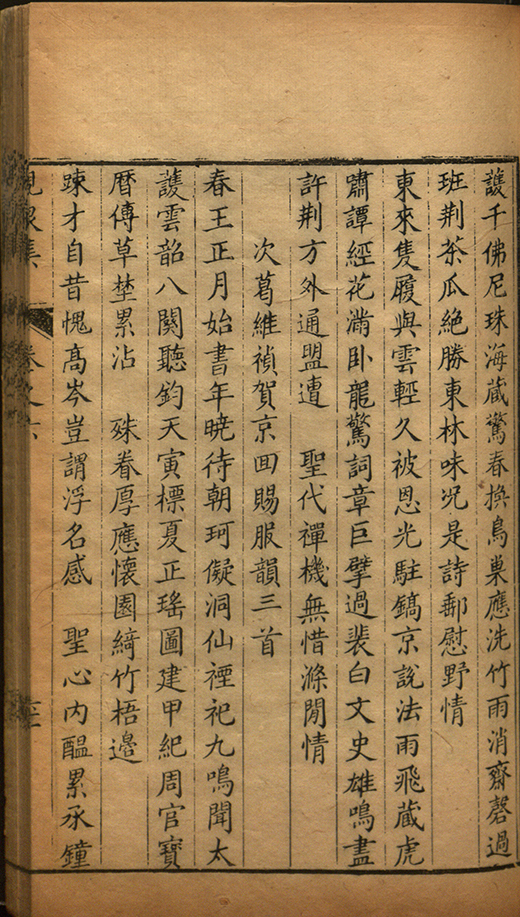 護千佛尼珠海蔵驚春換鳥巢應洗竹雨消齋磬過
班荆茶瓜絶勝東林味况是詩郵慰野情
東來隻履與雲輕久被恩光駐鎬京說法雨飛蔵虎
肅譚經花滿卧龍驚詞章巨擘過裴白文史雄鳴盡
許荆方外通盟遭　聖代禪機無惜滌閒情
次葛維禎賀京回賜服韻三首
春王正月始書年曉待朝珂儗洞仙禋祀九鳴聞太
護雲韶八闋聽鈞天寅標夏正瑤圖建甲紀周官寶
曆傳草埜累沾　殊眷厚應懷園綺竹梧邉
踈才自昔愧髙岑豈謂浮名感　聖心内醖累承鐘
集　卷之六